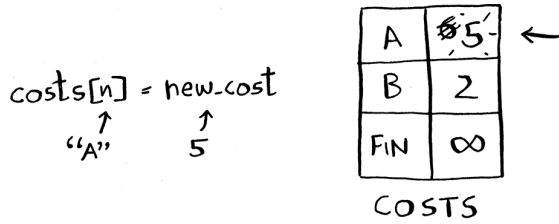 costs[n] = new_cost
↑ ↑
“A” 5
← 
A 5
B 2
FIN ∞
COSTS